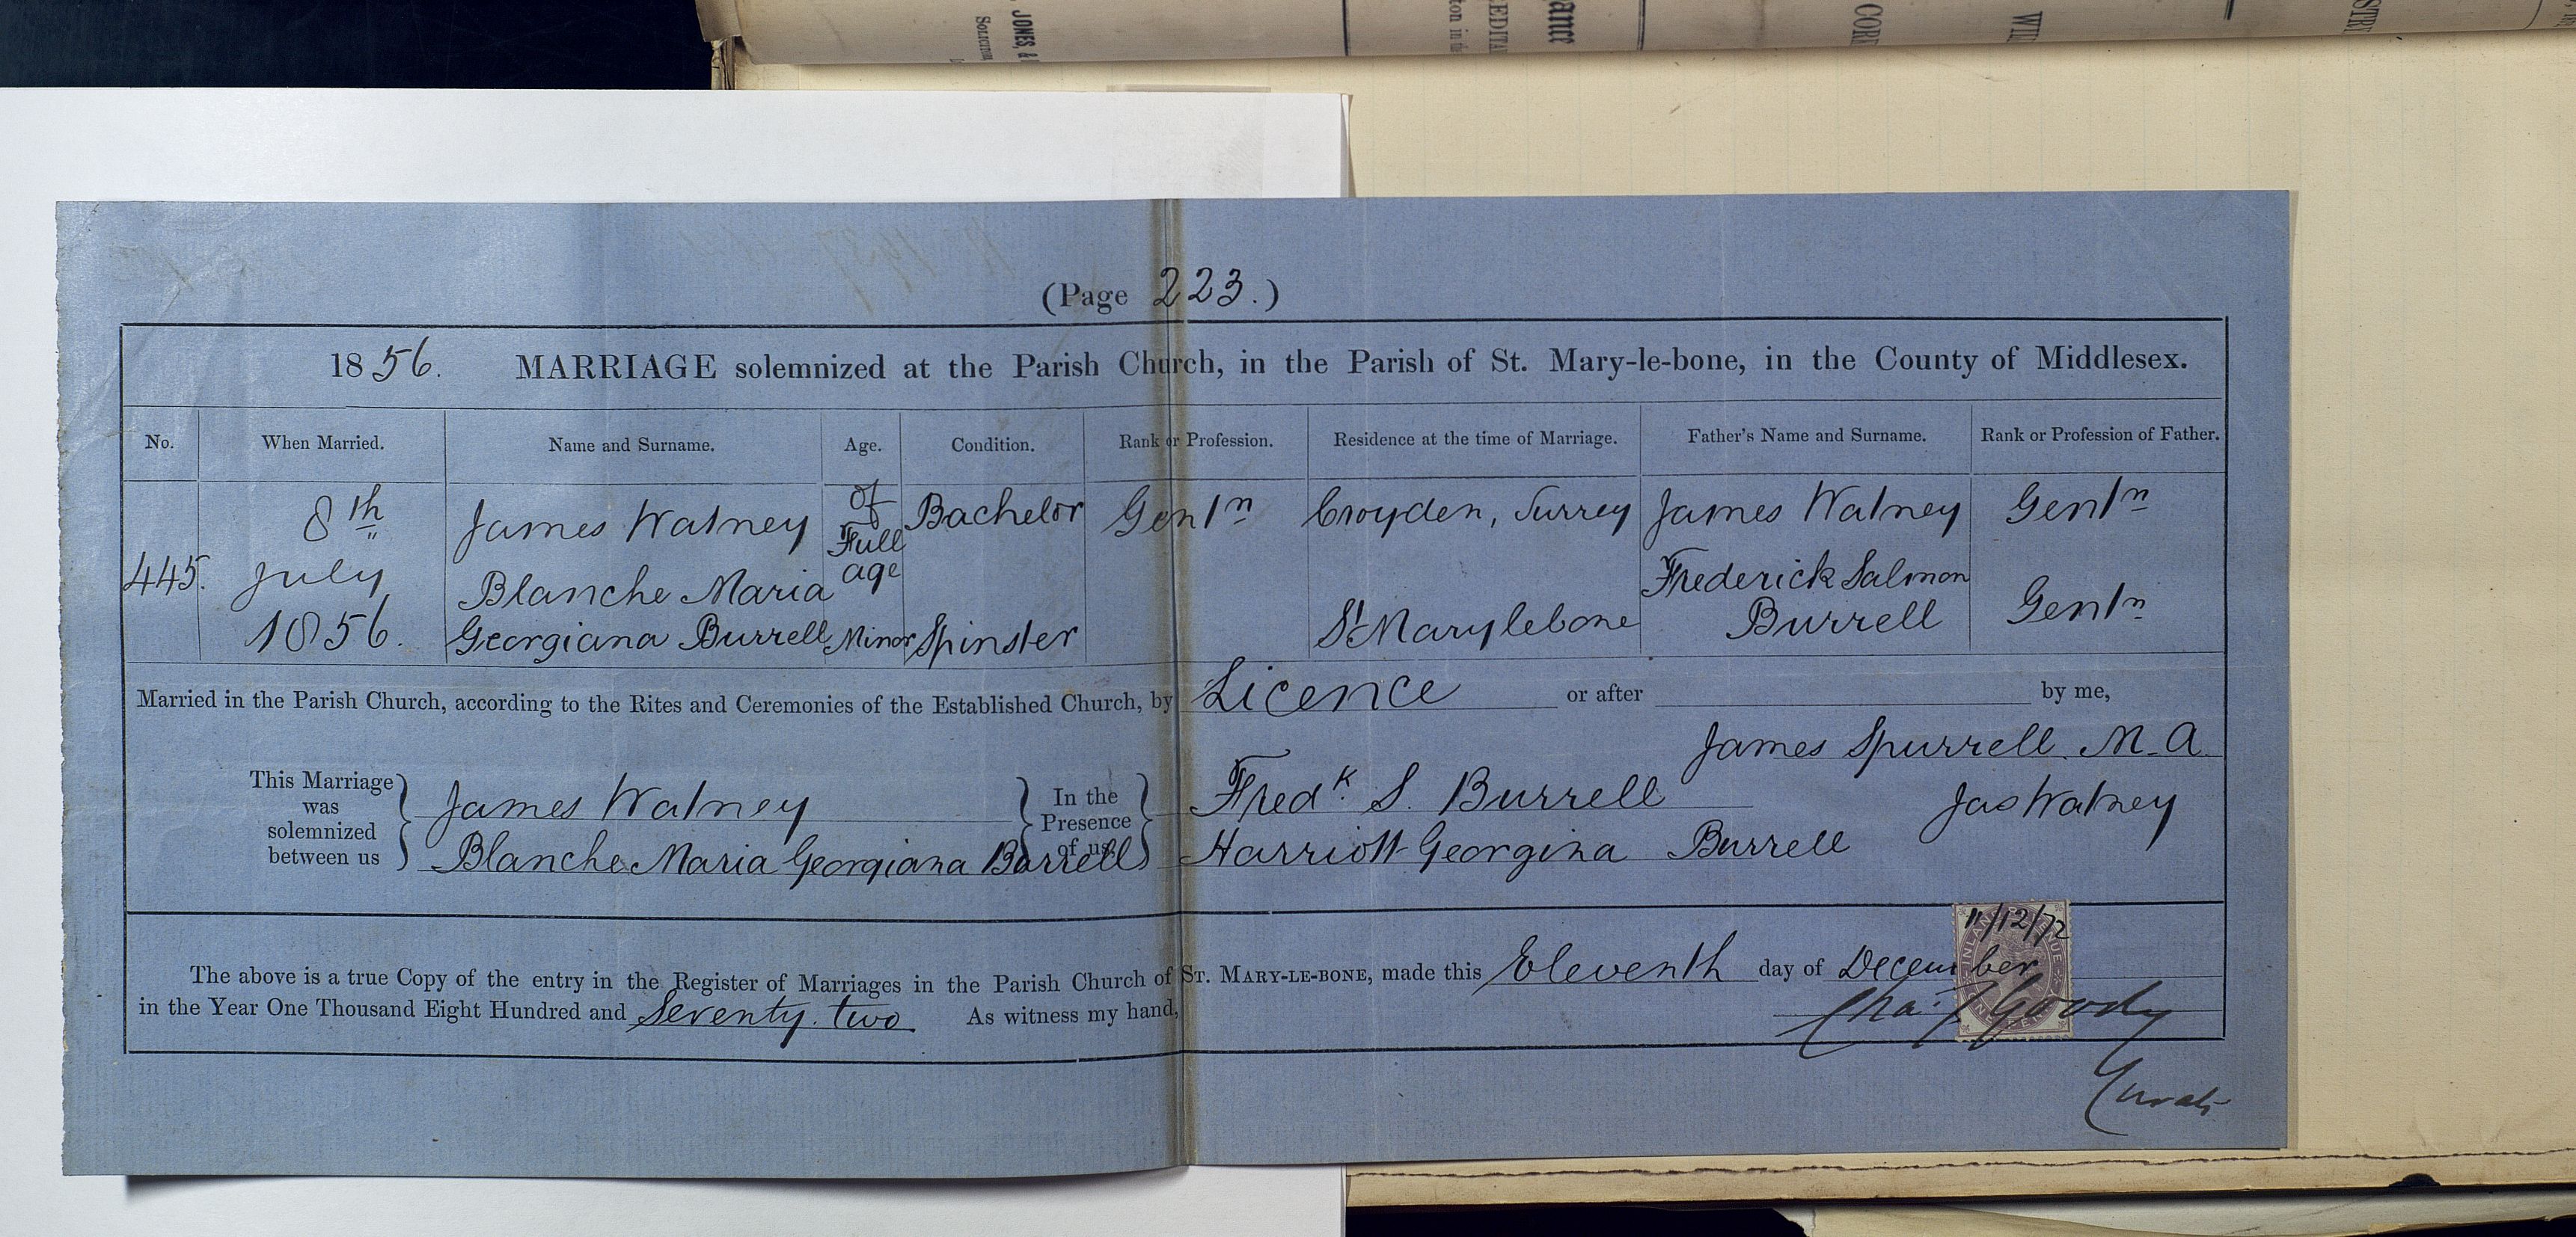 JONES, &
(Page 223.)
1856. MARRIAGE solemnized at the Parish Church, in the Parish of St. Mary-le-bone, in the County of Middlesex.
No. When Married. Name and Surname. Age. Condition. Rank or Profession. Residence at the time of Marriage. Father's Name and Surname. Rank or Profession of Father.
445. 8th July 1856.
James Watney Of Full age Bachelor Gentn Croyden, Surrey James Watney Gentn
Blanche Maria Georgiana Burrell Minor Spinster St Marylebone Frederick Salmon Burrell Gentn
Married in the Parish Church, according to the Rites and Ceremonies of the Established Church, by Licence or after by me,
James Spurrell M.A.
This Marriage was solemnized between us
James Watney
Blanche Maria Georgiana Burrell
In the Presence of us
Fredk. S. Burrell Jas Watney
Harriott Georgina Burrell
11/12/72
INLAND REVENUE
ONE PENNY
The above is a true Copy of the entry in the Register of Marriages in the Parish Church of St. Mary-le-bone, made this Eleventh day of December
in the Year One Thousand Eight Hundred and Seventy two As witness my hand,
Goody
Curate